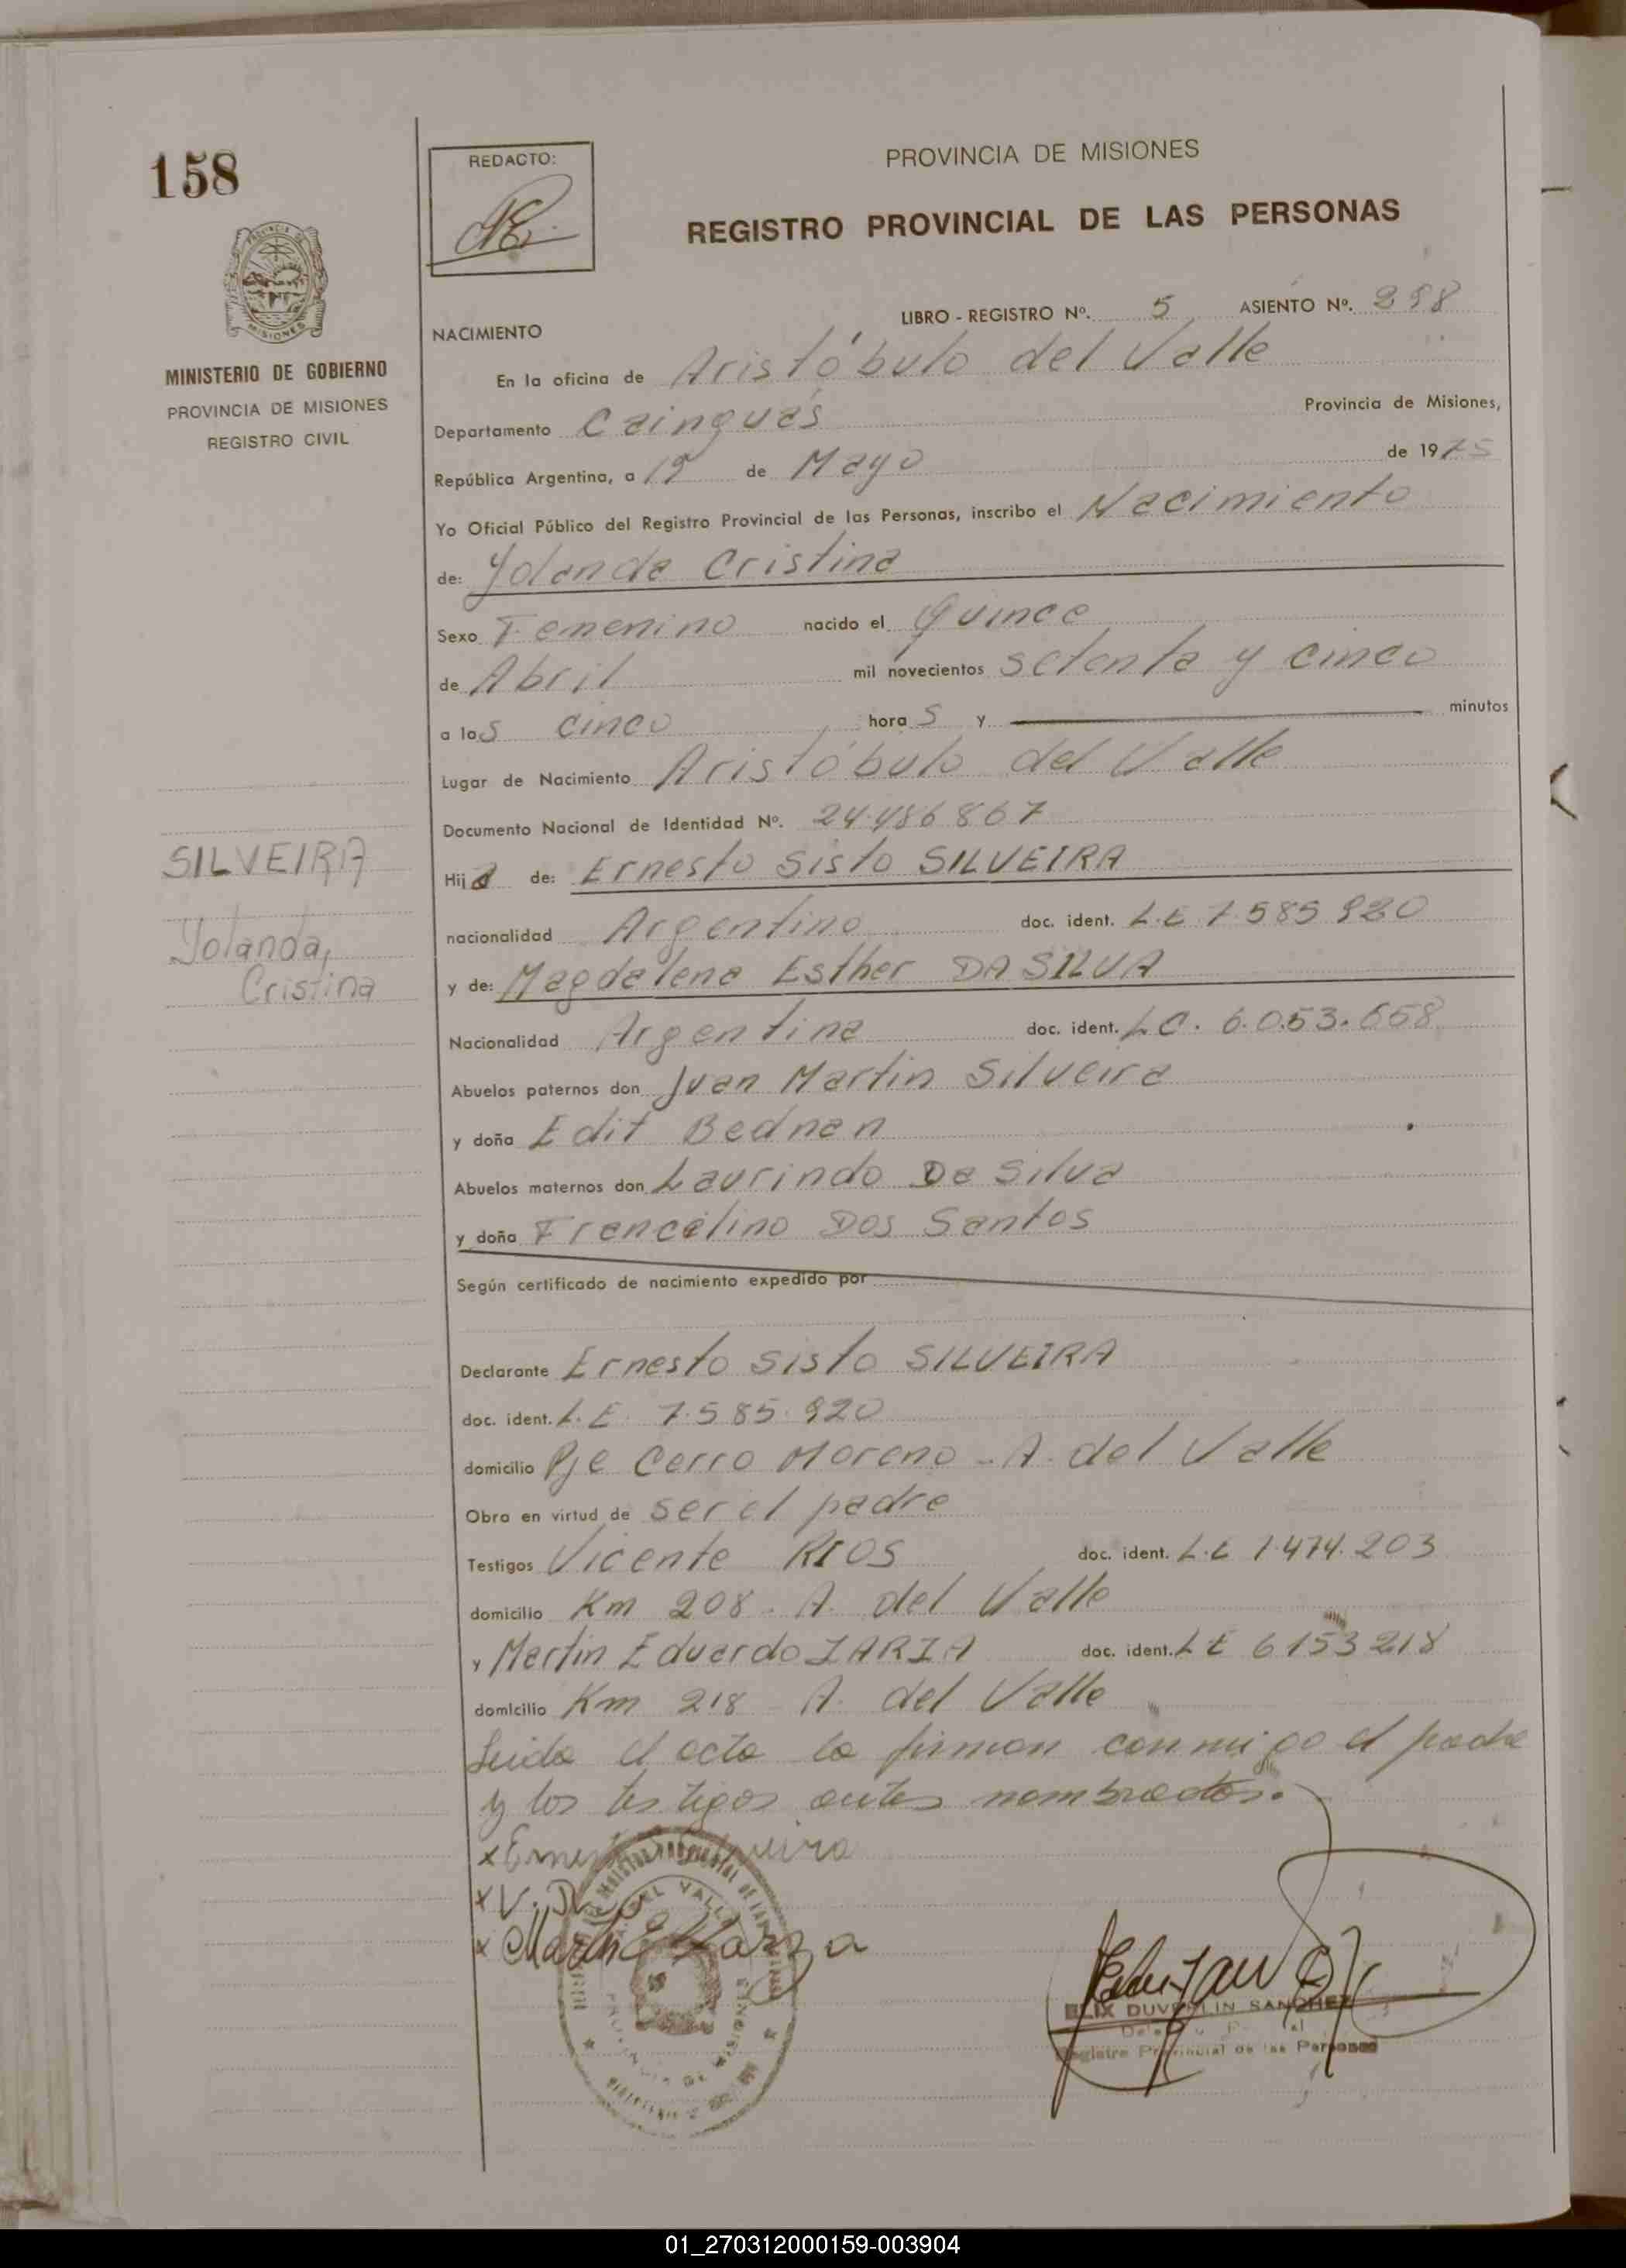 158
REDACTO:
PROVINCIA DE MISIONES
REGISTRO PROVINCIAL DE LAS PERSONAS
MINISTERIO DE GOBIERNO
PROVINCIA DE MISIONES
REGISTRO CIVIL
LIBRO - REGISTRO Nº. 5 ASIENTO Nº.
NACIMIENTO
En la oficina de Aristóbulo del Valle
Departamento Cainguás Provincia de Misiones,
República Argentina, a de Mayo de 1975
Yo Oficial Público del Registro Provincial de las Personas, inscribo el Nacimiento
de: Yolanda Cristina
Sexo Femenino nacido el Quince
de Abril mil novecientos setenta y cinco
a las cinco horas y minutos
Lugar de Nacimiento Aristóbulo del Valle
Documento Nacional de Identidad Nº. 24.486867
SILVEIRA
Yolanda,
Cristina
Hija de: Ernesto Sisto SILVEIRA
nacionalidad Argentino doc. ident. L.E 7.585.920
y de: Magdalena Esther DA SILVA
Nacionalidad Argentina doc. ident. L.C. 6.053.658
Abuelos paternos don Juan Martin Silveira
y doña Edit Bednan
Abuelos maternos don Laurindo Da Silva
y doña Francelino Dos Santos
Según certificado de nacimiento expedido por
Declarante Ernesto Sisto SILVEIRA
doc. ident. L.E. 7.585.920
domicilio Pje Cerro Moreno - A. del Valle
Obra en virtud de ser el padre
Testigos Vicente RIOS doc. ident. L.E 1.474.203
domicilio Km 208 - A. del Valle
y Martin Eduardo doc. ident. LE 6153218
domicilio Km 218 - A. del Valle
Leida el acta la firman conmigo el padre
y los testigos antes nombrados.
DUVERLIN SANCHEZ
Registro Provincial de las Personas
01_270312000159-003904